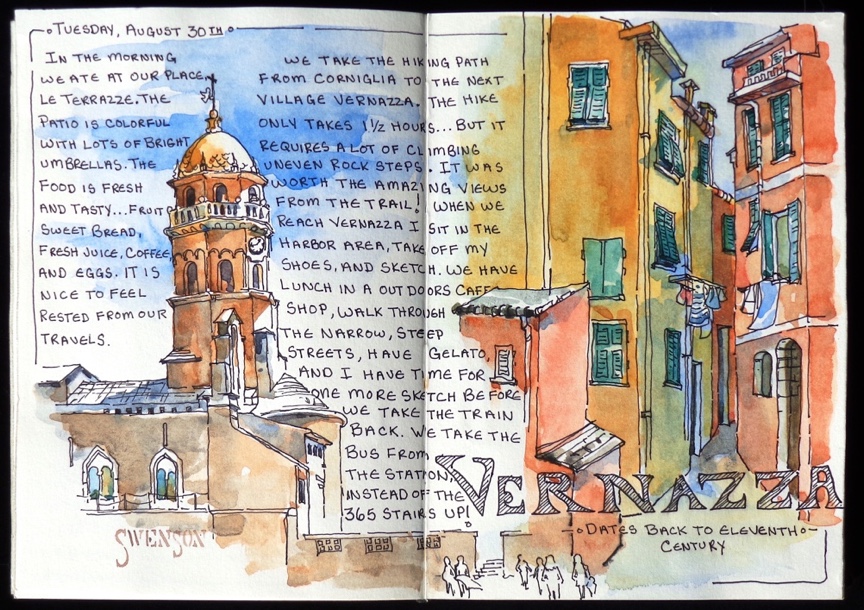 TUESDAY, AUGUST 30TH
IN THE MORNING
WE ATE AT OUR PLACE,
LE TERRAZZE. THE
PATIO IS COLORFUL
WITH LOTS OF BRIGHT
UMBRELLAS. THE
FOOD IS FRESH
AND TASTY...FRUIT
SWEET BREAD,
FRESH JUICE, COFFEE,
AND EGGS. IT IS
NICE TO FEEL
RESTED FROM OUR
TRAVELS.
WE TAKE THE HIKING PATH
FROM CORNIGLIA TO THE NEXT
VILLAGE VERNAZZA. THE HIKE
ONLY TAKES 1½ HOURS...BUT IT
REQUIRES A LOT OF CLIMBING
UNEVEN ROCK STEPS. IT WAS
WORTH THE AMAZING VIEWS
FROM THE TRAIL! WHEN WE
REACH VERNAZZA I SIT IN THE
HARBOR AREA, TAKE OFF MY
SHOES, AND SKETCH. WE HAVE
LUNCH IN A OUTDOORS CAFE
SHOP, WALK THROUGH
THE NARROW, STEEP
STREETS, HAVE GELATO,
AND I HAVE TIME FOR
ONE MORE SKETCH BEFORE
WE TAKE THE TRAIN
BACK. WE TAKE THE
BUS FROM
THE STATION
INSTEAD OF THE
365 STAIRS UP!
VERNAZZA
DATES BACK TO ELEVENTH
CENTURY
SWENSON